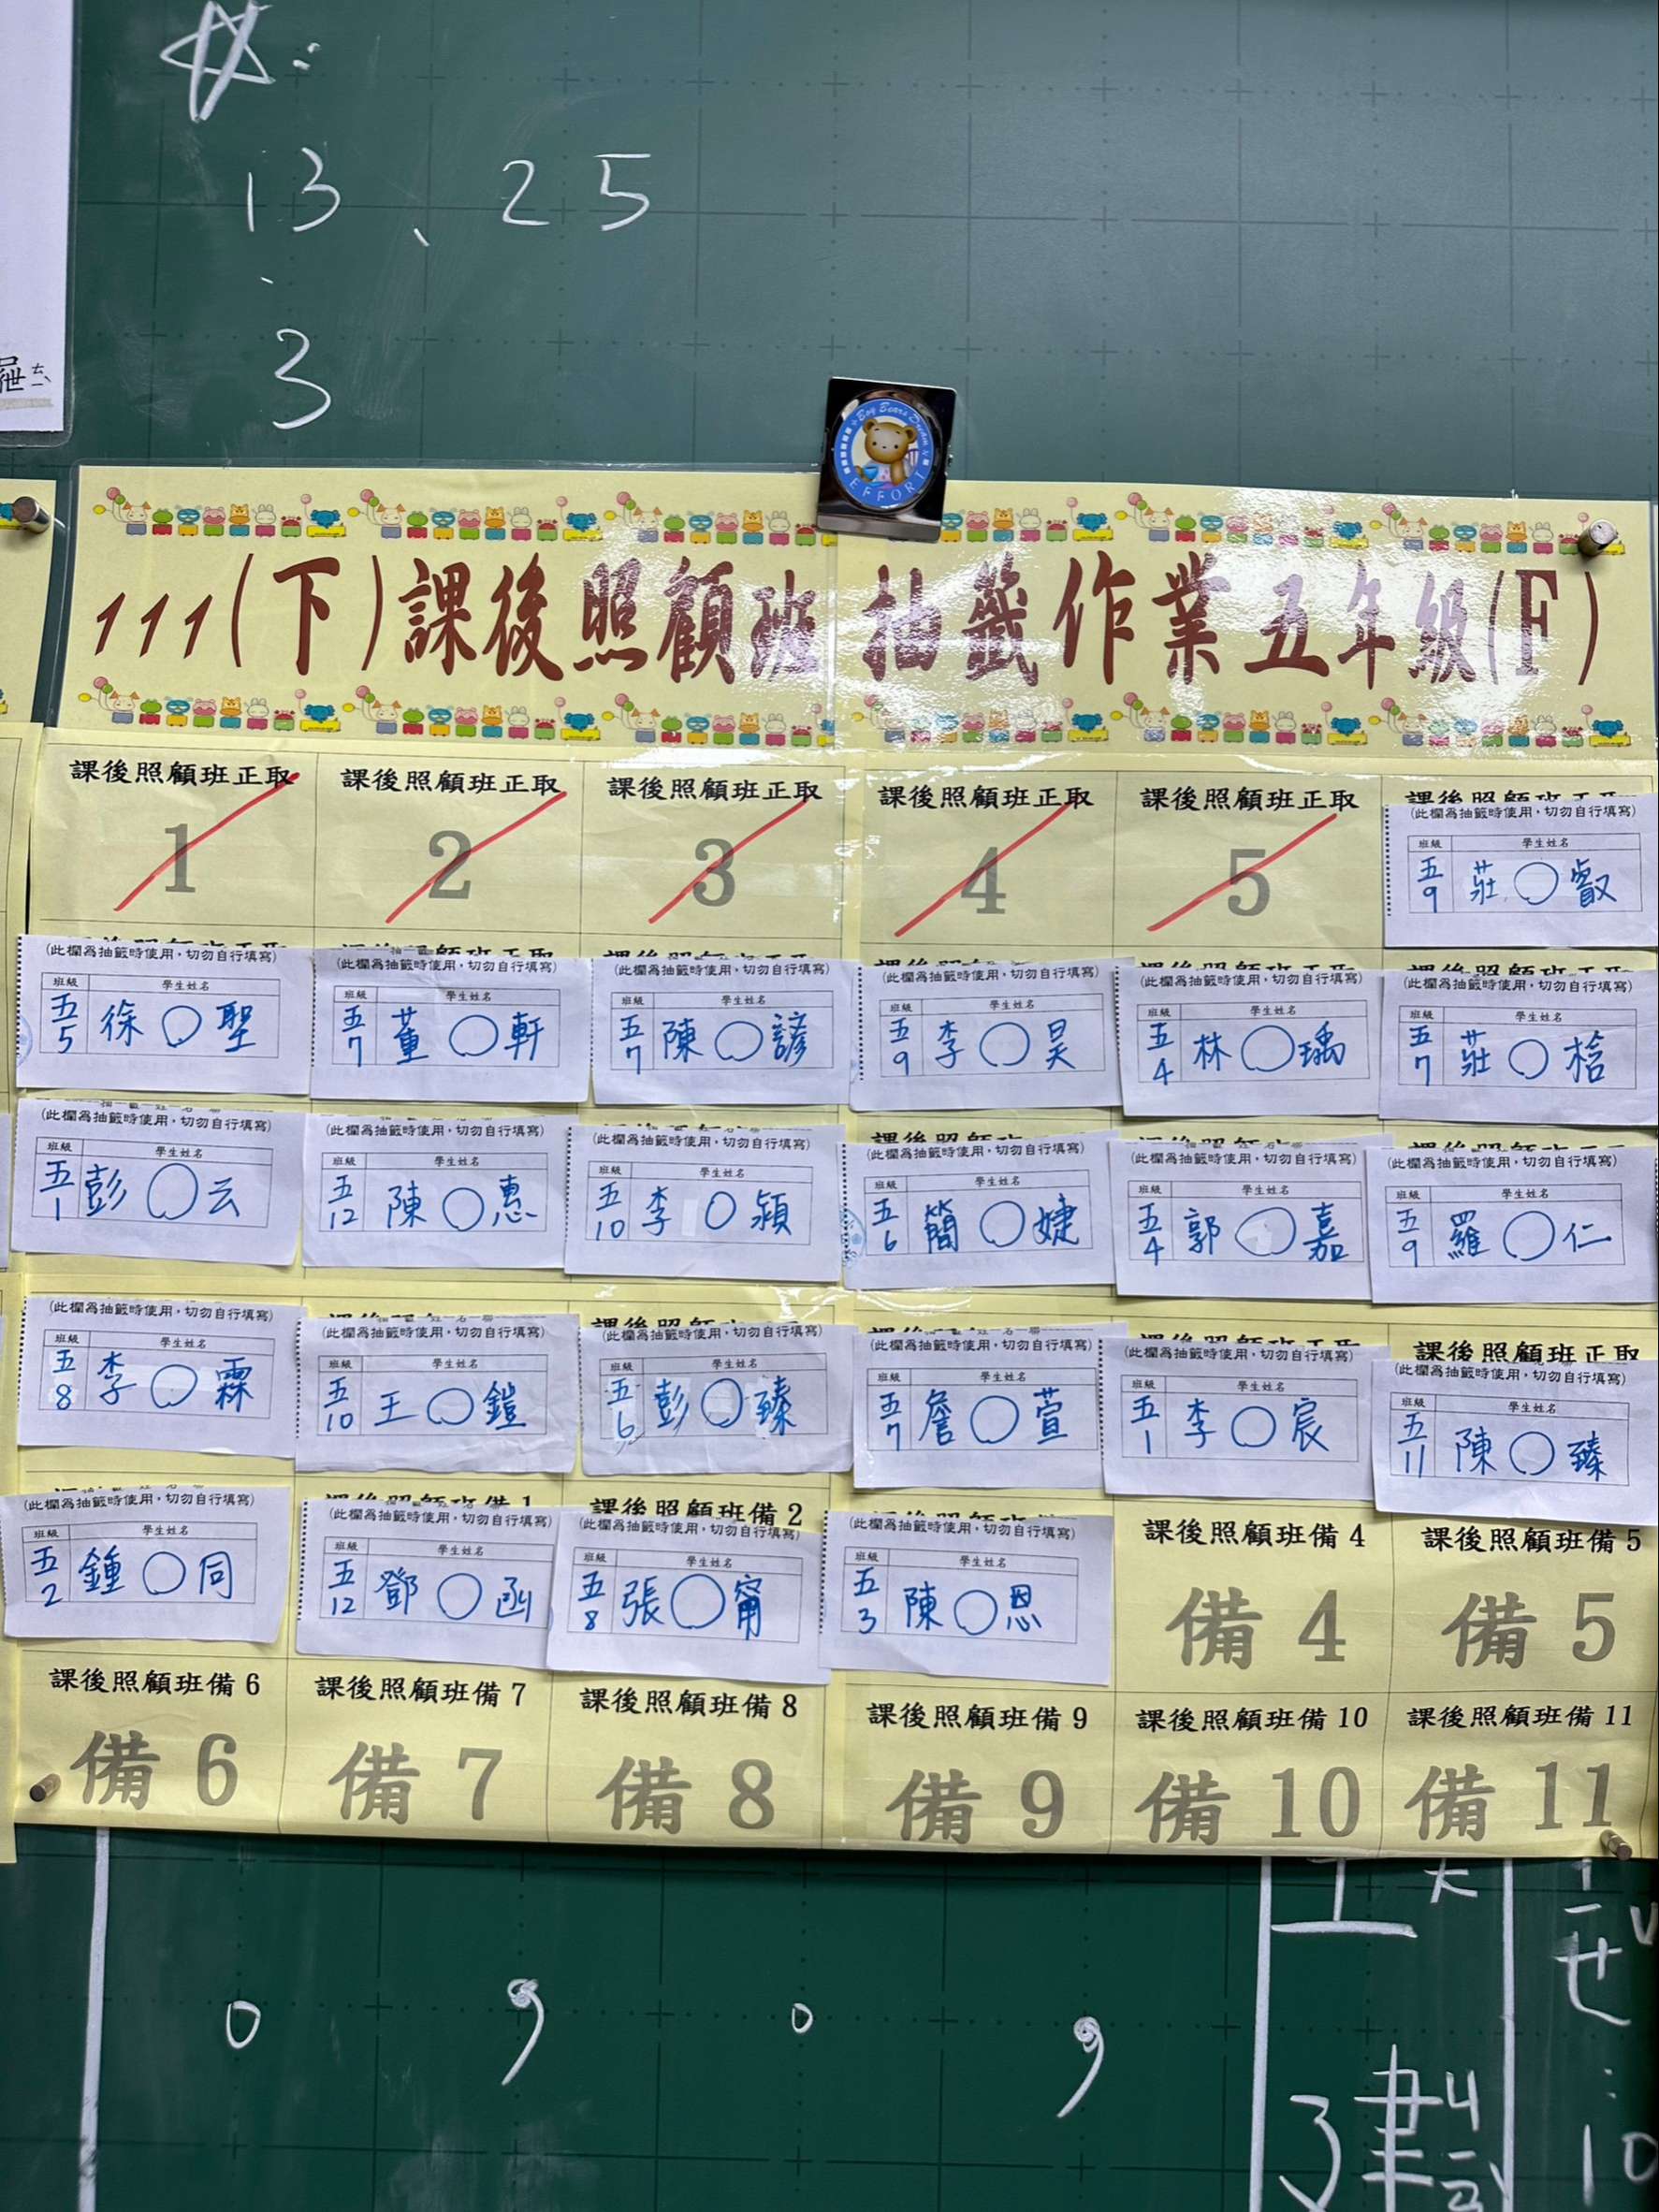 13、25
3
Boy Bears Dream
EFFORT
111(下)課後照顧班 抽籤作業五年級(F)
課後照顧班正取
1
課後照顧班正取
2
課後照顧班正取
3
課後照顧班正取
4
課後照顧班正取
5
(此欄為抽籤時使用，切勿自行填寫)
班級 學生姓名
五9 莊○叡
(此欄為抽籤時使用，切勿自行填寫)
班級 學生姓名
五5 徐○聖
(此欄為抽籤時使用，切勿自行填寫)
班級 學生姓名
五7 董○軒
(此欄為抽籤時使用，切勿自行填寫)
班級 學生姓名
五7 陳○諺
(此欄為抽籤時使用，切勿自行填寫)
班級 學生姓名
五9 李○昊
(此欄為抽籤時使用，切勿自行填寫)
班級 學生姓名
五4 林○瑀
(此欄為抽籤時使用，切勿自行填寫)
班級 學生姓名
五7 莊○棓
(此欄為抽籤時使用，切勿自行填寫)
班級 學生姓名
五1 彭○云
(此欄為抽籤時使用，切勿自行填寫)
班級 學生姓名
五12 陳○惠
(此欄為抽籤時使用，切勿自行填寫)
班級 學生姓名
五10 李○潁
(此欄為抽籤時使用，切勿自行填寫)
班級 學生姓名
五6 簡○婕
(此欄為抽籤時使用，切勿自行填寫)
班級 學生姓名
五4 郭○嘉
(此欄為抽籤時使用，切勿自行填寫)
班級 學生姓名
五9 羅○仁
(此欄為抽籤時使用，切勿自行填寫)
班級 學生姓名
五8 李○霖
(此欄為抽籤時使用，切勿自行填寫)
班級 學生姓名
五10 王○鎧
(此欄為抽籤時使用，切勿自行填寫)
班級 學生姓名
五6 彭○臻
(此欄為抽籤時使用，切勿自行填寫)
班級 學生姓名
五7 詹○萱
(此欄為抽籤時使用，切勿自行填寫)
班級 學生姓名
五1 李○宸
課後照顧班正取
(此欄為抽籤時使用，切勿自行填寫)
班級 學生姓名
五11 陳○臻
(此欄為抽籤時使用，切勿自行填寫)
班級 學生姓名
五2 鍾○同
課後照顧班備 1
(此欄為抽籤時使用，切勿自行填寫)
班級 學生姓名
五12 鄧○函
課後照顧班備 2
(此欄為抽籤時使用，切勿自行填寫)
班級 學生姓名
五8 張○甯
(此欄為抽籤時使用，切勿自行填寫)
班級 學生姓名
五3 陳○恩
課後照顧班備 4
備 4
課後照顧班備 5
備 5
課後照顧班備 6
備 6
課後照顧班備 7
備 7
課後照顧班備 8
備 8
課後照顧班備 9
備 9
課後照顧班備 10
備 10
課後照顧班備 11
備 11